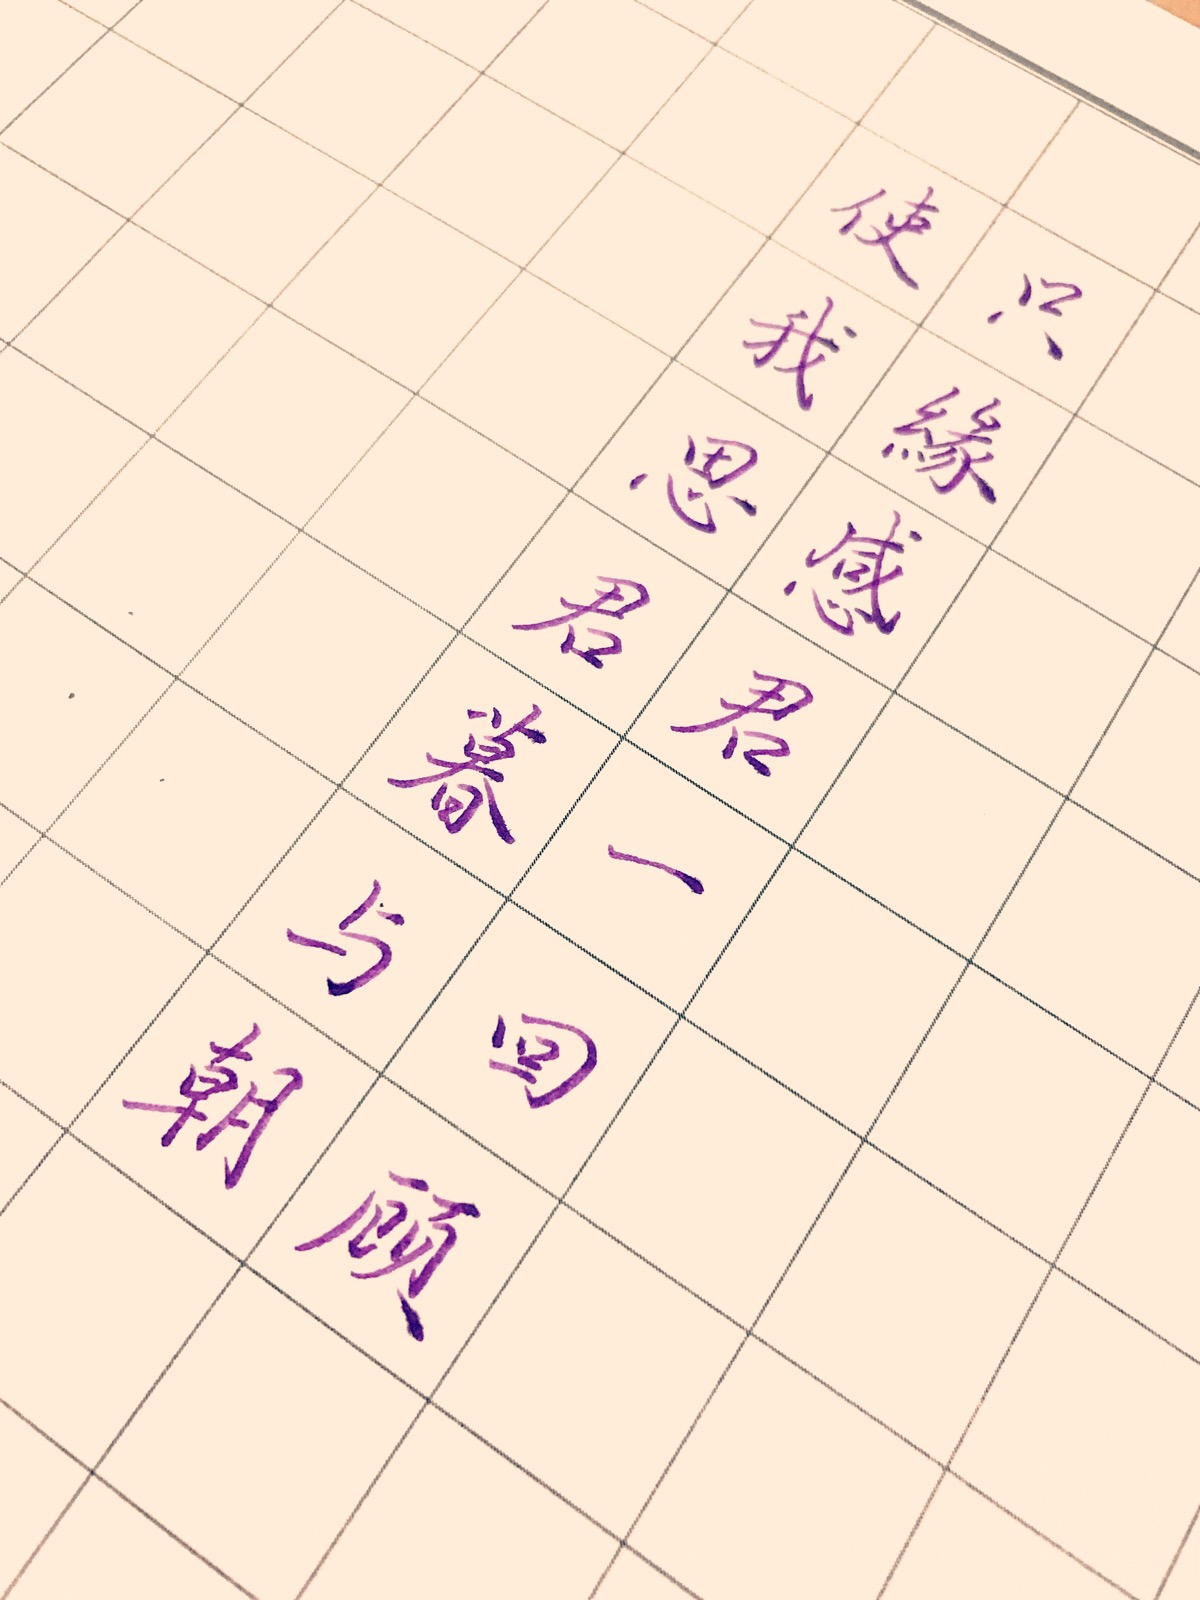 只緣感君一回顾
使我思君暮与朝